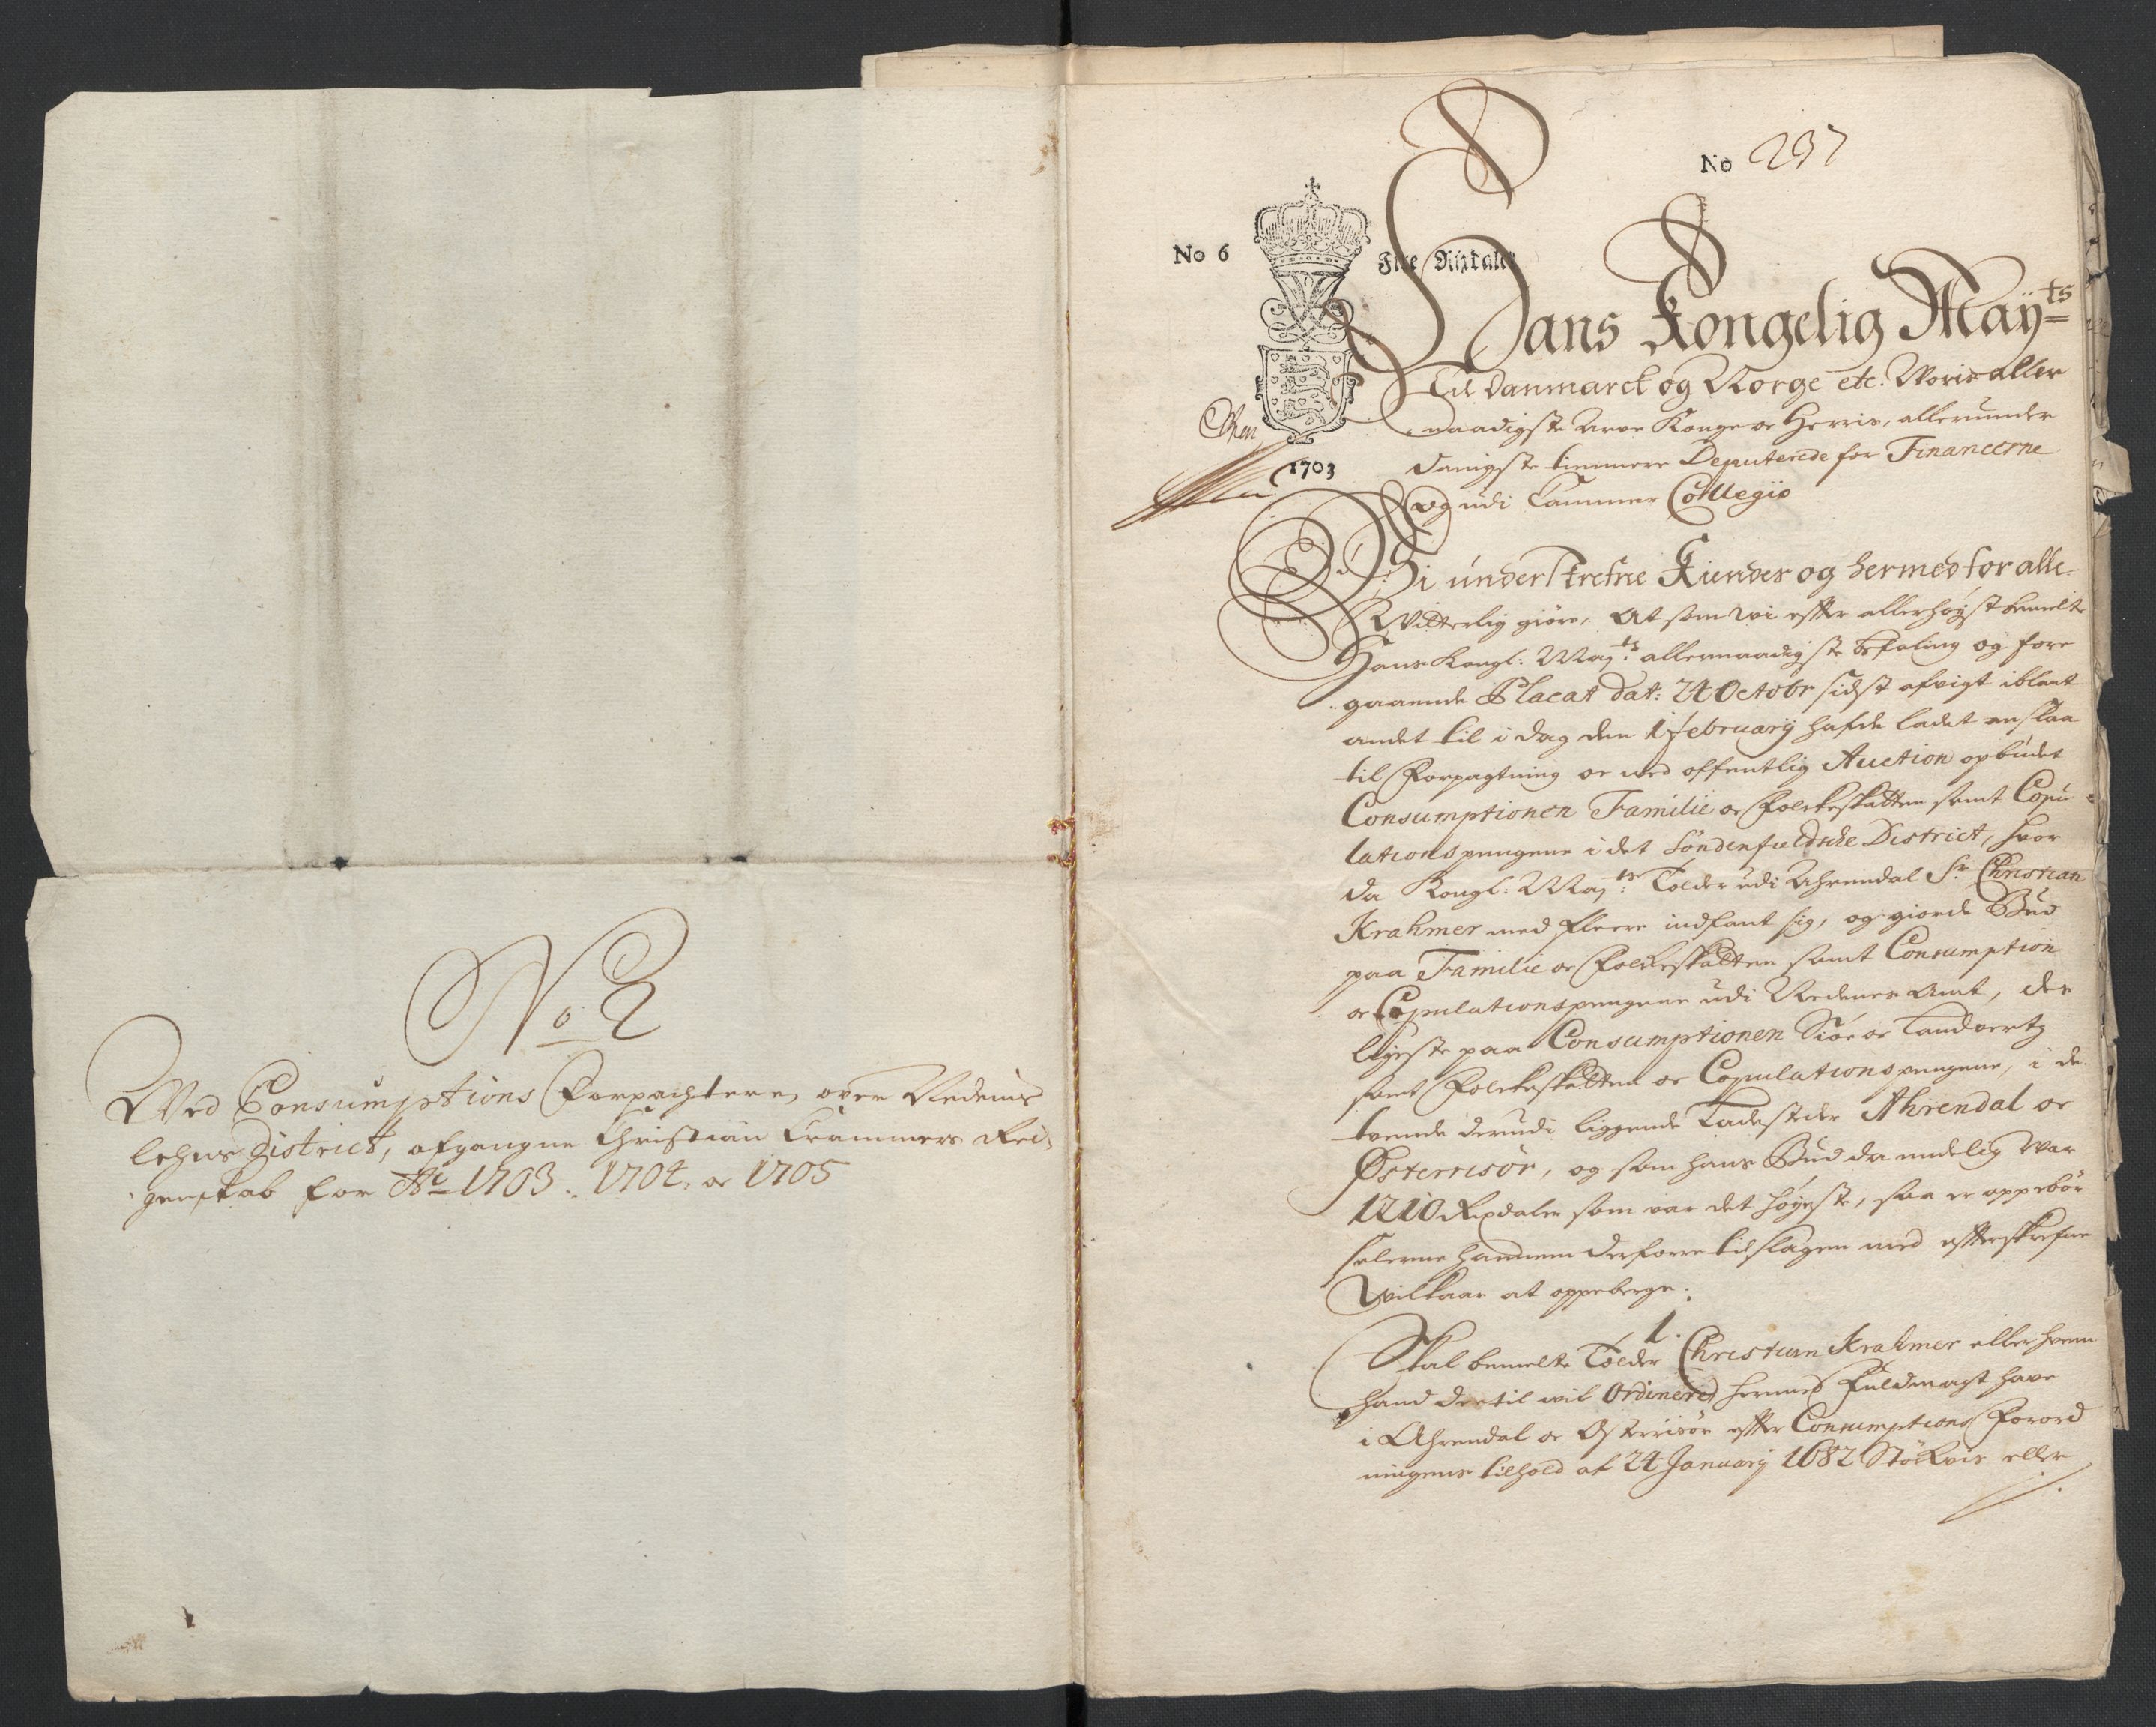 No 2
Ved Consumptions Forpachteren over Nedenis
lehns District, afgangne Christian Krammers Rei¸
genskab for A͞o 1703. 1704. oc 1705
No 237
No 6
Fire Rixtaler
1703
Hans Kongelig Maÿts
Til Danmarck og Norge etc. Voris aller
naadigste Arve Konge oc Herris, allerunder
danigste tiennere Deputerede for Financerne
og udi Cammer Collegio
Vi underskrefne Kiendes og hermed for alle
Witterlig giøre, At som Wi effter allerhøyst bemelte
Hans Kongl: May:ts allernaadigste befaling og fore
gaaende Placat dat: 24 Octobr sidst afvigt iblant
andet til i dag den 1 februarÿ hafde ladet anslaa
til Forpagtning oc ved offentlig Auction opbudet
Consumptionen Familie oc Folckeskatten samt Copu
lationspengene i det Søndenfieldske District, hvor
da Kongl: May:ts Tolder udi Ahrendal Sr Christian
Krahmer med fleere indfant sig, og giorde Bud
paa Familie oc Folckeskatten samt Consumption
oc Copulationspengene udi Nedenes Amt, des
ligeste paa Consumptionen Siøe oc Landvertz
samt Folckeskatten oc Copulationspengene, i de
tvende derudi liggende Ladesteder Ahrendal oc
Østerrisør, og som hans Bud da endelig var
1210 Rixdaler som var det høyeste, saa er oppebør
selerne hannem derforre tilslagen med effterskrefne
Vilkaar at oppeberge:
1.
Skal bemelte Tolder Christian Krahmer eller hvem
hand dertil vil Ordinered hermed Fuldmagt have
i Ahrendal oc Østerrisør effter Consumptions Forord
ningens tilhold af 24 Januarÿ 1682 Støckvis eller